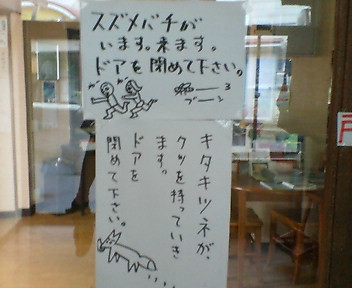 スズメバチが
います。来ます。
ドアを閉めて下さい。
ブーン
キタキツネが、
クツを持っていき
ます。
ドアを
閉めて下さい。